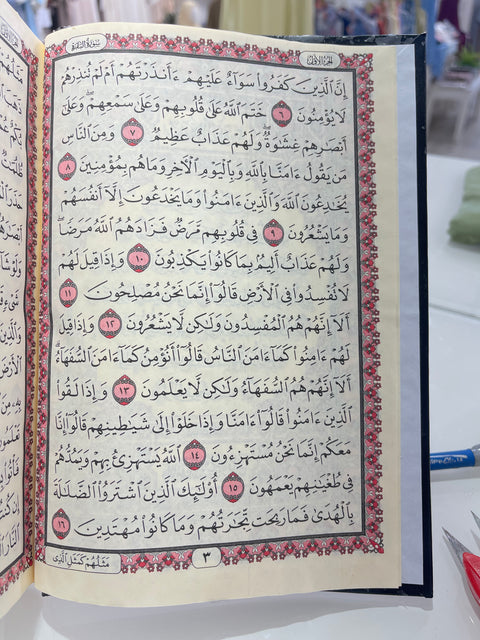 الجزء الأول
سورة البقرة
إِنَّ ٱلَّذِينَ كَفَرُوا۟ سَوَآءٌ عَلَيْهِمْ ءَأَنذَرْتَهُمْ أَمْ لَمْ تُنذِرْهُمْ
لَا يُؤْمِنُونَ ٦ خَتَمَ ٱللَّهُ عَلَىٰ قُلُوبِهِمْ وَعَلَىٰ سَمْعِهِمْ ۖ وَعَلَىٰٓ
أَبْصَـٰرِهِمْ غِشَـٰوَةٌ ۖ وَلَهُمْ عَذَابٌ عَظِيمٌ ٧ وَمِنَ ٱلنَّاسِ
مَن يَقُولُ ءَامَنَّا بِٱللَّهِ وَبِٱلْيَوْمِ ٱلْـَٔاخِرِ وَمَا هُم بِمُؤْمِنِينَ ٨
يُخَـٰدِعُونَ ٱللَّهَ وَٱلَّذِينَ ءَامَنُوا۟ وَمَا يَخْدَعُونَ إِلَّآ أَنفُسَهُمْ
وَمَا يَشْعُرُونَ ٩ فِى قُلُوبِهِم مَّرَضٌ فَزَادَهُمُ ٱللَّهُ مَرَضًا ۖ
وَلَهُمْ عَذَابٌ أَلِيمٌۢ بِمَا كَانُوا۟ يَكْذِبُونَ ١٠ وَإِذَا قِيلَ لَهُمْ
لَا تُفْسِدُوا۟ فِى ٱلْأَرْضِ قَالُوٓا۟ إِنَّمَا نَحْنُ مُصْلِحُونَ ١١
أَلَآ إِنَّهُمْ هُمُ ٱلْمُفْسِدُونَ وَلَـٰكِن لَّا يَشْعُرُونَ ١٢ وَإِذَا قِيلَ
لَهُمْ ءَامِنُوا۟ كَمَآ ءَامَنَ ٱلنَّاسُ قَالُوٓا۟ أَنُؤْمِنُ كَمَآ ءَامَنَ ٱلسُّفَهَآءُ ۗ
أَلَآ إِنَّهُمْ هُمُ ٱلسُّفَهَآءُ وَلَـٰكِن لَّا يَعْلَمُونَ ١٣ وَإِذَا لَقُوا۟
ٱلَّذِينَ ءَامَنُوا۟ قَالُوٓا۟ ءَامَنَّا وَإِذَا خَلَوْا۟ إِلَىٰ شَيَـٰطِينِهِمْ قَالُوٓا۟ إِنَّا
مَعَكُمْ إِنَّمَا نَحْنُ مُسْتَهْزِءُونَ ١٤ ٱللَّهُ يَسْتَهْزِئُ بِهِمْ وَيَمُدُّهُمْ
فِى طُغْيَـٰنِهِمْ يَعْمَهُونَ ١٥ أُو۟لَـٰٓئِكَ ٱلَّذِينَ ٱشْتَرَوُا۟ ٱلضَّلَـٰلَةَ
بِٱلْهُدَىٰ فَمَا رَبِحَت تِّجَـٰرَتُهُمْ وَمَا كَانُوا۟ مُهْتَدِينَ ١٦
٣
مَثَلُهُمْ كَمَثَلِ ٱلَّذِى